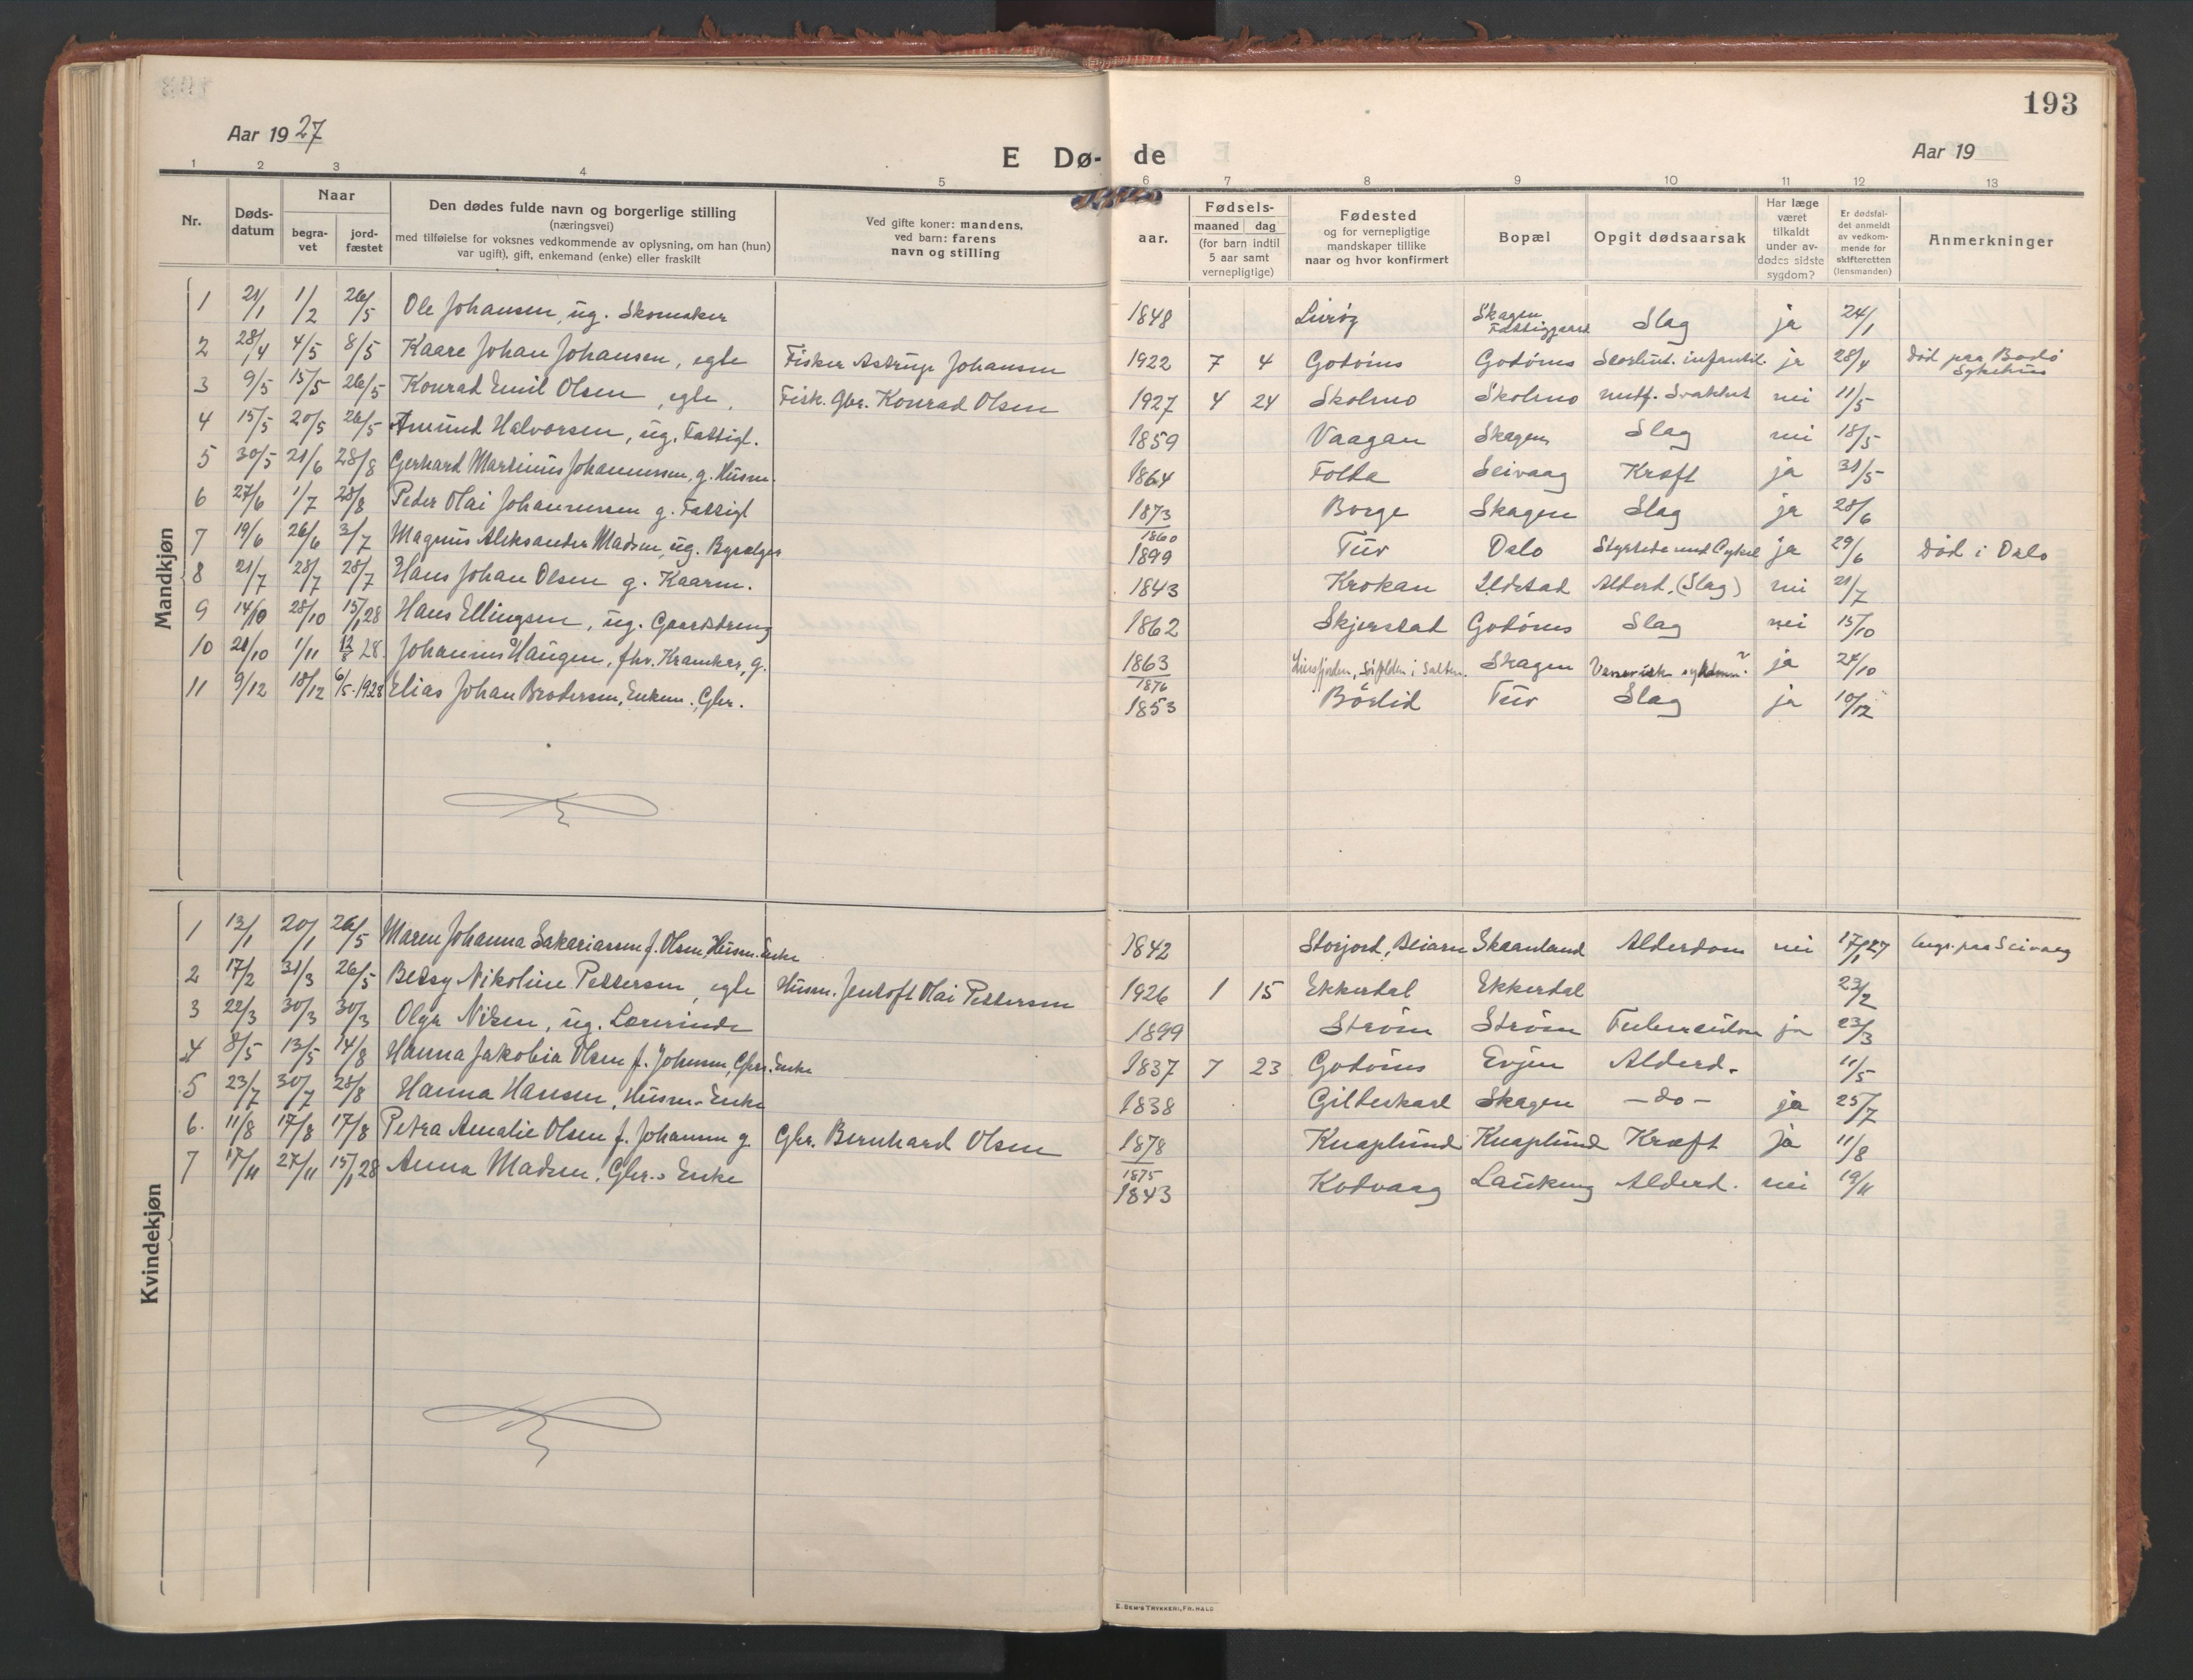 193
Aar 1927
E Dø- de
Aar 19
1 2 3 4 5 6 7 8 9 10 11 12 13
Nr.
Døds-
datum
Naar
begra-
vet
jord-
fæstet
Den dødes fulde navn og borgerlige stilling
(næringsvei)
med tilføielse for voksnes vedkommende av oplysning, om han (hun)
var ugift), gift, enkemand (enke) eller fraskilt
Ved gifte koner: mandens,
ved barn: farens
navn og stilling
aar.
Fødsels-
maaned dag
(for barn indtil
5 aar samt
vernepligtige)
Fødested
og for vernepligtige
mandskaper tillike
naar og hvor konfirmert
Bopæl
Opgit dødsaarsak
Har læge
været
tilkaldt
under av-
dødes sidste
sygdom?
Er dødsfal-
det anmeldt
av vedkom-
mende for
skifteretten
(lensmanden)
Anmerkninger
Mandkjøn
1 21/1 1/2 26/5 Ole Johansen, ug. Skomaker 1848 Skagen Fattiggaard Slag ja 24/1
2 28/4 4/5 8/5 Kaare Johan Johansen, egte Fisker Astrup Johansen 1922 7 4 Godönes Godönes infantil. ja 28/4 Död paa Bodö Sykehus
3 9/5 15/5 26/5 Konrad Emil Olsen, egte, Fisk. Gbr. Konrad Olsen 1927 4 24 Skolmo Skolmo medf. Svakhet nei 11/5
4 15/5 20/5 26/5 Amund Halvorsen, ug. Fattigl. 1859 Vaagan Skagen Slag nei 18/5
5 30/5 21/6 28/8 Gerhard Martinus Johannessen, g. Husm. 1864 Folda Seivaag Kræft ja 31/5
6 27/6 1/7 28/8 Peder Olai Johannessen g. Fattigl 1873 Borge Skagen Slag ja 28/6
7 19/6 26/6 3/7 Magnus Aleksander Madsen, ug. 1860 1899 Tuv Oslo Styrtede med Cykel ja 29/6 Död i Oslo
8 21/7 28/7 28/7 Hans Johan Olsen g. Kaarm. 1843 Krokan Ildstad Alderd. (Slag) nei 21/7
9 14/10 28/10 15/1 28 Hans Ellingsen, ug. Gaardsdreng 1862 Skjerstad Godönes Slag nei 15/10
10 21/10 1/11 12/8 28. Johannes Haugen, fhv. Kramkar, g. 1863 Sörfolden i Salten. Skagen Venerisk sykdom? ja 24/10
11 9/12 18/12 6/5.1928 Elias Johan Brodersen, Enkem. Gbr. 1876 1853 Börlid Tuv Slag ja 10/12
Kvindekjøn
1 13/1 20/1 26/5 Maren Johanna Sakariassen f. Olsen, Husm. Enke 1842 Storjord, Beiarn Skaanland Alderdom nei 17/1 27 begr. paa Seivaag
2 17/2 31/3 26/5 Betsy Nikoline Pettersen, egte Husm. Jentoft Olai Pettersen 1926 1 15 Ekkerdal Ekkerdal 23/2
3 22/3 30/3 30/3 Olga Nilsen, ug. Lærerinde 1899 Ström Ström Tuberculose ja 23/3
4 8/5 13/5 14/8 Hanna Jakobia Olsen f. Johnsen, Gbr. Enke 1837 7 23 Godönes Evjen Alderd. 11/5
5 23/7 30/7 28/8 Hanna Hansen, Husm. Enke 1838 Gildeskaal Skagen – do – ja 25/7
6. 11/8 17/8 17/8 Petra Amalie Olsen f. Johansen g. Gbr. Bernhard Olsen 1878 Knaplund Knaplund Kræft ja 11/8
7 17/11 27/11 15/1 28 Anna Madsen, Gbr.s Enke 1875 1843 Kodvaag Lauking Alderd. nei 19/11
E. SEM'S TRYKKERI, FR.HALD